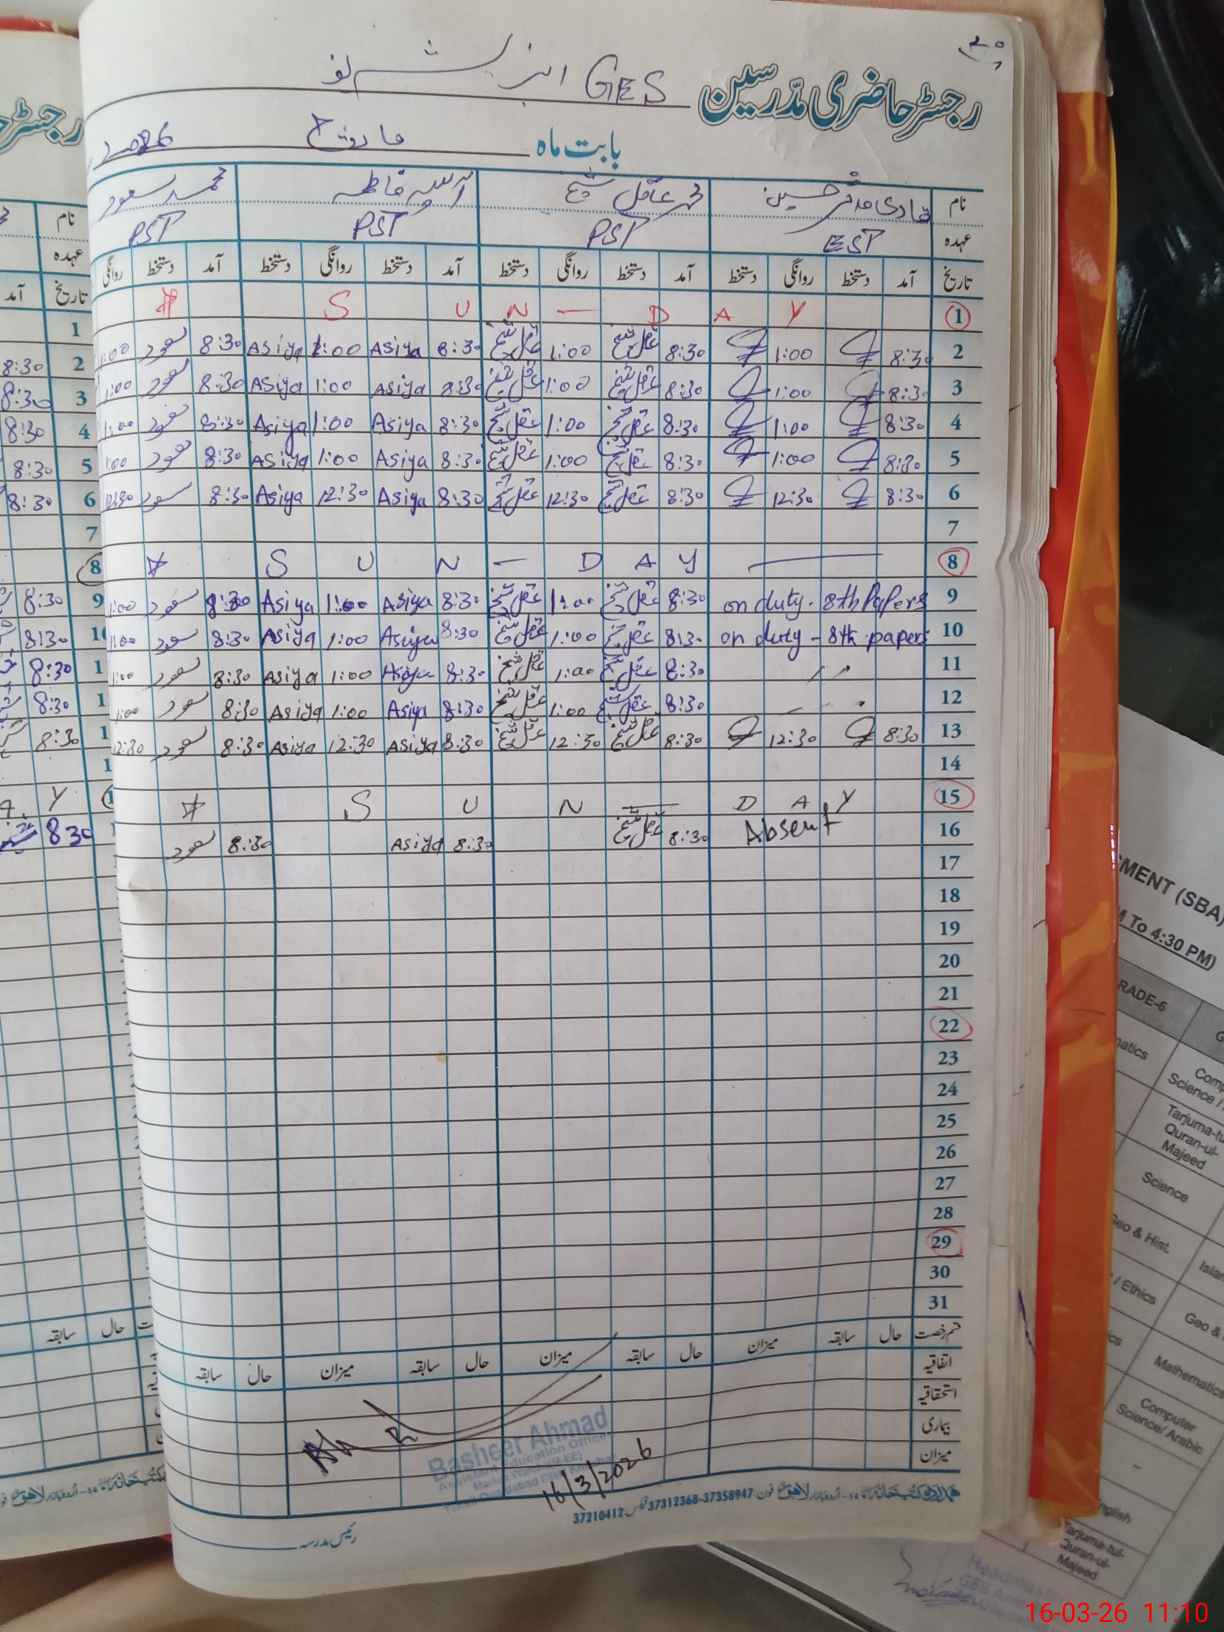 رجسٹر حاضری مدرسین GES
بابت ماہ مارچ 2026
نام قاری مدثر حسین محمد عاقل شیخ آسیہ فاطمہ محمد سعود
عہدہ EST PST PST PST
تاریخ آمد دستخط روانگی دستخط آمد دستخط روانگی دستخط آمد دستخط روانگی دستخط آمد دستخط روانگی
1 S U N — D A Y
2 8:30 1:00 8:30 عاقل شیخ 1:00 عاقل شیخ 8:30 Asiya 1:00 Asiya 8:30 سعود 1:00
3 8:30 1:00 8:30 عاقل شیخ 1:00 عاقل شیخ 8:30 Asiya 1:00 Asiya 8:30 سعود 1:00
4 8:30 1:00 8:30 عاقل شیخ 1:00 عاقل شیخ 8:30 Asiya 1:00 Asiya 8:30 سعود 1:00
5 8:30 1:00 8:30 عاقل شیخ 1:00 عاقل شیخ 8:30 Asiya 1:00 Asiya 8:30 سعود 1:00
6 8:30 12:30 8:30 عاقل شیخ 12:30 عاقل شیخ 8:30 Asiya 12:30 Asiya 8:30 سعود 12:30
7
8 S U N — D A Y
9 on duty - 8th Papers 8:30 عاقل شیخ 1:00 عاقل شیخ 8:30 Asiya 1:00 Asiya 8:30 سعود 1:00
10 on duty - 8th papers 8:30 عاقل شیخ 1:00 عاقل شیخ 8:30 Asiya 1:00 Asiya 8:30 سعود 1:00
11 〃 8:30 عاقل شیخ 1:00 عاقل شیخ 8:30 Asiya 1:00 Asiya 8:30 سعود 1:00
12 〃 8:30 عاقل شیخ 1:00 عاقل شیخ 8:30 Asiya 1:00 Asiya 8:30 سعود 1:00
13 8:30 12:30 8:30 عاقل شیخ 12:30 عاقل شیخ 8:30 Asiya 12:30 Asiya 8:30 سعود 12:30
14
15 S U N — D A Y
16 Absent 8:30 عاقل شیخ 8:30 Asiya 8:30 سعود
17
18
19
20
21
22
23
24
25
26
27
28
29
30
31
قسم رخصت حال سابقہ میزان حال سابقہ میزان حال سابقہ میزان حال سابقہ
اتفاقیہ
استحقاقیہ
بیماری
میزان
Basheer Ahmad
Assistant Education Officer
16/3/2026
37312368-37358947 فون
37210412
رئیس مدرسہ
نام
عہدہ
تاریخ آمد
1
2 8:30
3 8:30
4 8:30
5 8:30
6 8:30
7
8
9 8:30
10 8:30
8:30
8:30
8:30
A Y
8 30
حال سابقہ
(SBA)
To 4:30 PM)
RADE-6
Science
Tarjuma-tul-
Quran-ul-
Majeed
Science
Geo & Hist.
/ Ethics
Geo &
Mathematics
Computer
Science/ Arabic
-
English
Tarjuma-tul-
Quran-ul-
Majeed
16-03-26 11:10